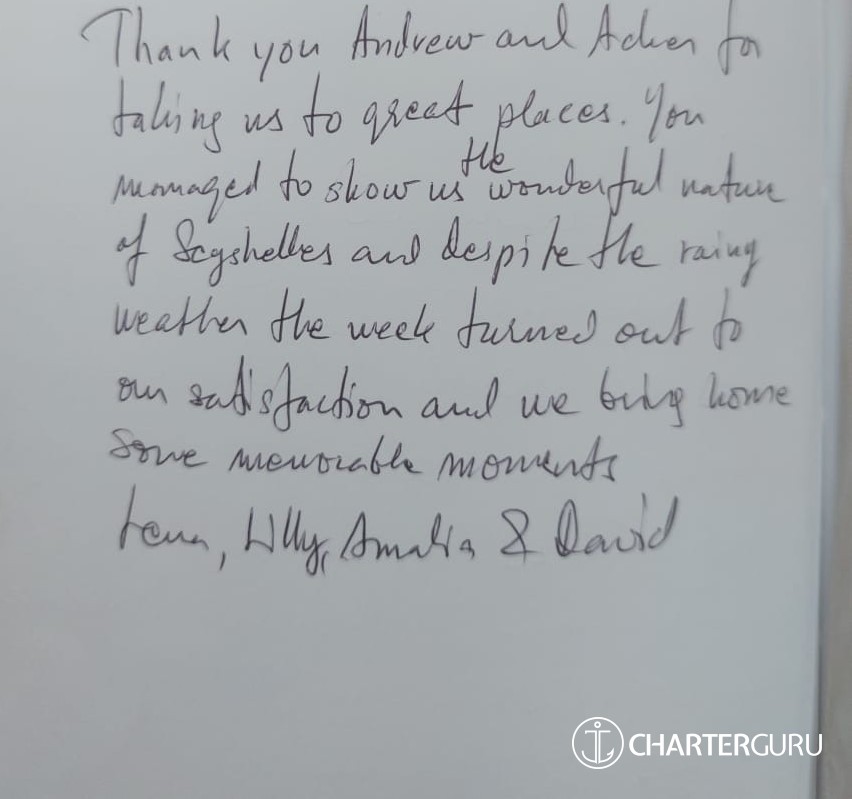 Thank you Andrew and for
taking us to great places. You
managed to show us the wonderful nature
of Seyshelles and despite the rainy
weather the week turned out to
our satisfaction and we bring home
some memorable moments
Lena, Lilly, Amalia & David
CHARTERGURU